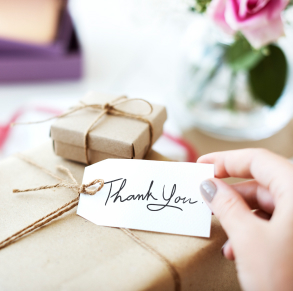 Thank You.